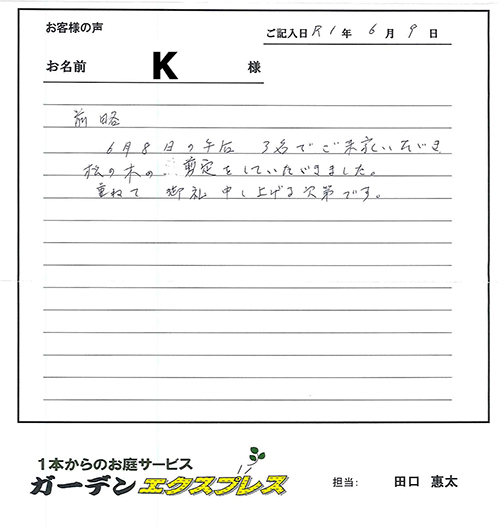 お客様の声
ご記入日 R1年6月9日
お名前 K 様
前略
6月8日の午后 3名でご来宅いただき
松の木の 剪定をしていただきました。
重ねて 御礼 申し上げる次第です。
1本からのお庭サービス
ガーデンエクスプレス
担当: 田口 惠太